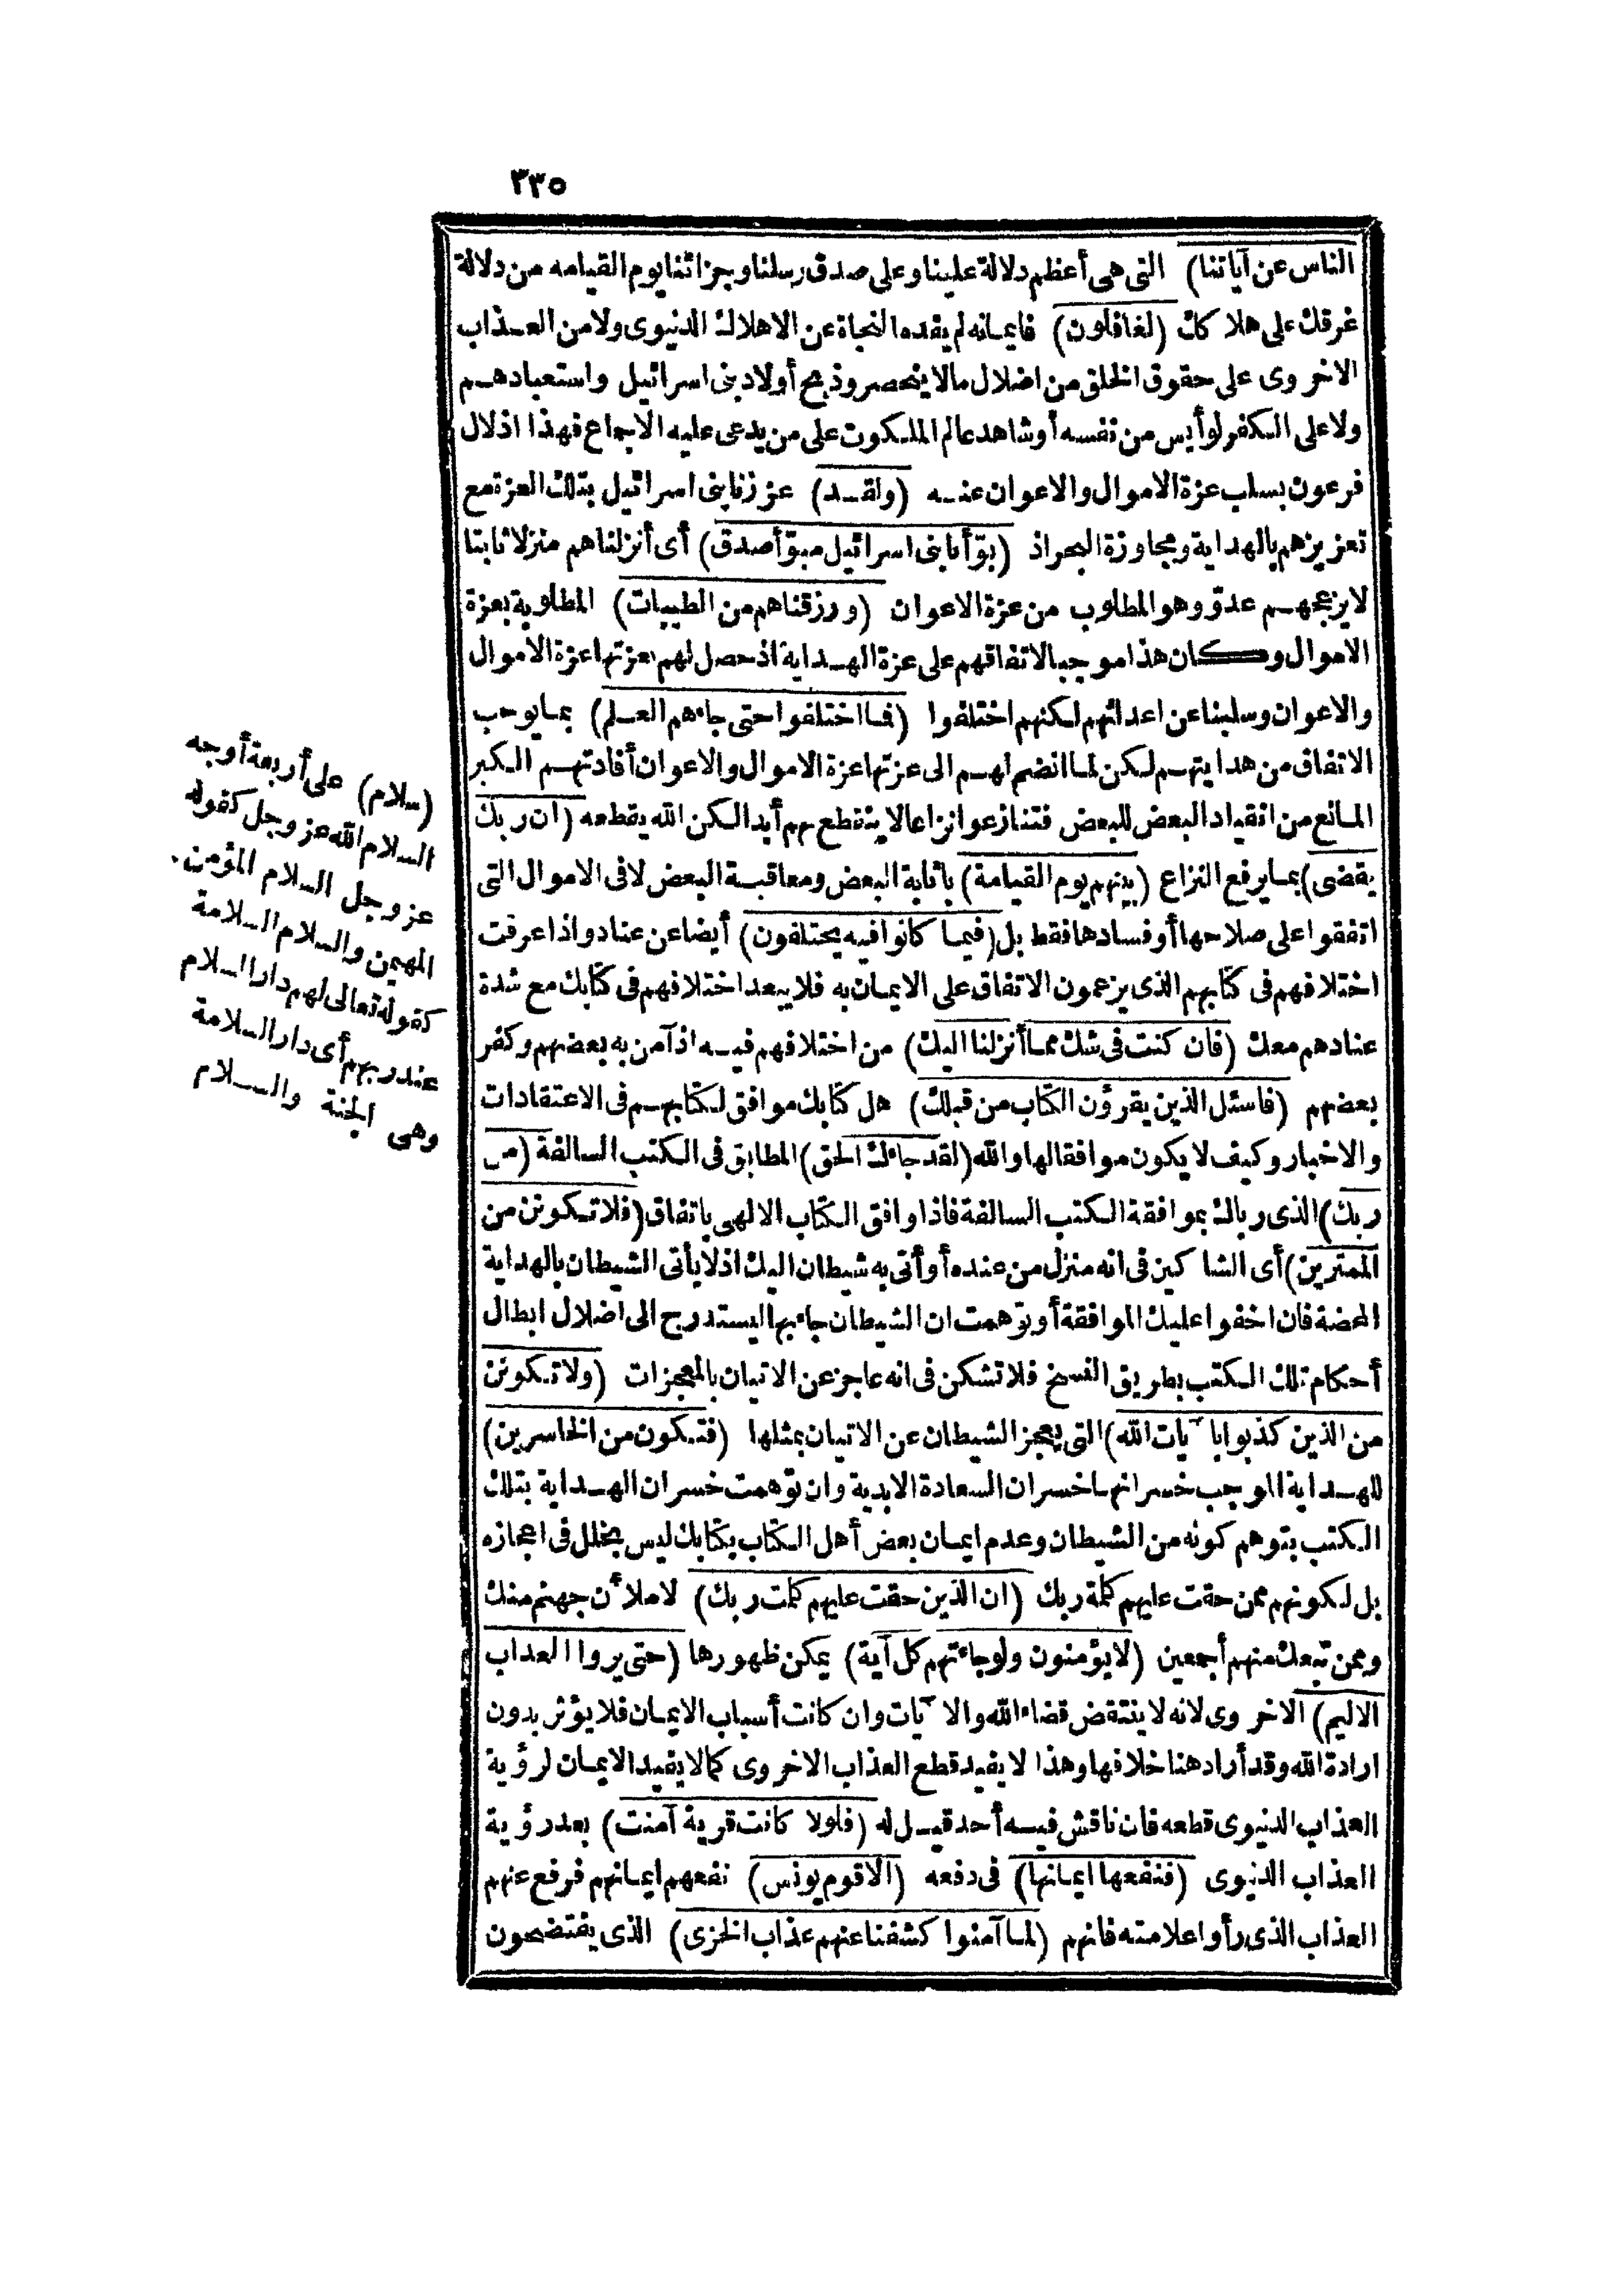 ٣٣٥
الناس عن آياتنا) التى هى أعظم دلالة علينا وعلى صدق رسلنا وبجزائنا يوم القيامه من دلالة
غرقك على هلا كك (لغافلون) فايمانه لم يفده النجاة عن الاهلاك الدنيوى ولا من العذاب
الاخر وى على حقوق الخلق من اضلال مالا ينحصر وذبح أولاد بنى اسرائيل واستعبادهم
ولا على الكفر لو أيس من نفسه أو شاهد عالم الملكوت على من يدعى عليه الاجماع فهذا اذلال
فرعون بسلب عزة الاموال والاعوان عنه (ولقد) عززنا بنى اسرائيل بتلك العزة مع
تعزيزهم بالهداية ومجاوزة البحر اذ (بوّأنا بنى اسرائيل مبوّأ صدق) أى أنزلناهم منزلا ثابتا
لا يزعجهم عدوّ وهو المطلوب من عزة الاعوان (ورزقناهم من الطيبات) المطلوبة بعزة
الاموال وكان هذا موجبا لاتفاقهم على عزة الهداية اذ حصل لهم بعزتها عزة الاموال
والاعوان وسلبنا عن اعدائهم لكنهم اختلفوا (فما اختلفوا حتى جاءهم العلم) بما يوجب
الاتفاق من هدايتهم لكن لما انضم لهم الى عزتها عزة الاموال والاعوان أفادتهم الكبر
المانع من انقياد البعض للبعض فتنازعوا نزاعا لا ينقطع بهم أبدا لكن الله يقطعه (ان ربك
يقضى) بما يرفع النزاع (بينهم يوم القيامة) باثابة البعض ومعاقبة البعض لا فى الاموال التى
اتفقوا على صلاحها أو فسادها فقط بل (فيما كانوا فيه يختلفون) أيضا عن عناد واذا عرفت
اختلافهم فى كتابهم الذى يزعمون الاتفاق على الايمان به فلا يبعد اختلافهم فى كتابك مع شدة
عنادهم معك (فان كنت فى شك مما أنزلنا اليك) من اختلافهم فيه اذ آمن به بعضهم وكفر
بعضهم (فاسئل الذين يقرؤن الكتاب من قبلك) هل كتابك موافق لكتابهم فى الاعتقادات
والاخبار وكيف لا يكون موافقا لها والله (لقد جاءك الحق) المطابق فى الكتب السالفة (من
ربك) الذى رباك بموافقة الكتب السالفة فاذا وافق الكتاب الالهى باتفاق (فلا تكونن من
الممترين) أى الشا كين فى انه منزل من عنده أو أتى به شيطان اليك اذ لا يأتى الشيطان بالهداية
المحضة فان اخفوا عليك الموافقة أو توّهمت ان الشيطان جاء بها ليستدرج الى اضلال ابطال
أحكام تلك الكتب بطريق النسخ فلا تشكن فى انه عاجز عن الاتيان بالمعجزات (ولا تكونن
من الذين كذبوا بآيات الله) التى يعجز الشيطان عن الاتيان بمثلها (فتكون من الخاسرين)
للهداية الموجب خسرانها خسران السعادة الابدية وان توّهمت خسران الهداية بتلك
الكتب بتوهم كونه من الشيطان وعدم ايمان بعض أهل الكتاب بكتابك ليس بمخلل فى اعجازه
بل لكونهم ممن حقت عليهم كلمة ربك (ان الذين حقت عليهم كلمت ربك) لاملأن جهنم منك
وممن تبعك منهم أجمعين (لا يؤمنون ولو جاءتهم كل آية) يمكن ظهورها (حتى يروا العذاب
الاليم) الاخر وى لانه لا ينتقض قضاء الله والا آيات وان كانت أسباب الايمان فلا يؤثر بدون
ارادة الله وقد أراد هنا خلافها وهذا لا يفيد قطع العذاب الاخر وى كما لا يفيد الايمان لرؤية
العذاب الدنيوى قطعه فان ناقش فيه أحد قيل له (فلولا كانت قرية آمنت) بعد رؤية
العذاب الدنيوى (فنفعها ايمانها) فى دفعه (الاقوم يونس) نفعهم ايمانهم فرفع عنهم
العذاب الذى رأوا علامته فانهم (لما آمنوا كشفنا عنهم عذاب الخزى) الذى يفتضحون
(سلام) على أربعة أوجه
السلام الله عز وجل كقوله
عز وجل السلام المؤمن
المهيمن والسلام السلامة
كقوله تعالى لهم دار السلام
عند ربهم أى دار السلامة
وهى الجنة والسلام